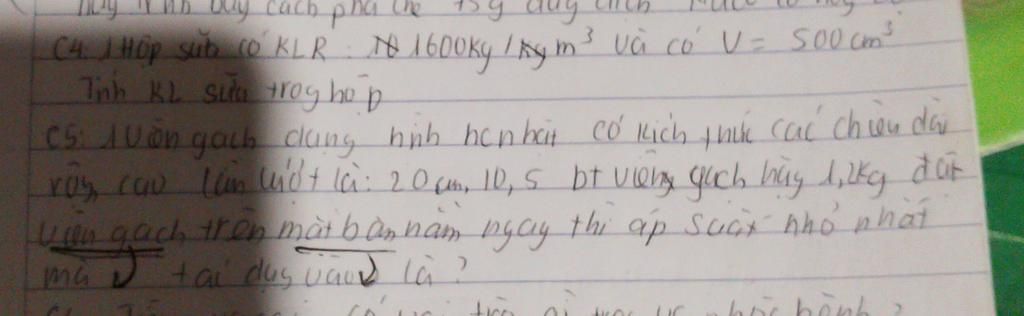 Hãy trình bày cách pha chế 75g dung dịch
C4. 1 Hộp sữa có KLR: 1600Kg/m³ và có V = 500 cm³
Tính KL sữa trog hộp
C5: 1 viên gạch dạng hình hcnhật có kích thức các chiều dài
rộg, cao lần lượt là: 20cm, 10, 5 bt viêng gạch nặg 1,2kg đặt
viên gạch trên mặt bàn nằm ngag thì áp suất nhỏ nhất
mà tác dụg vào là?